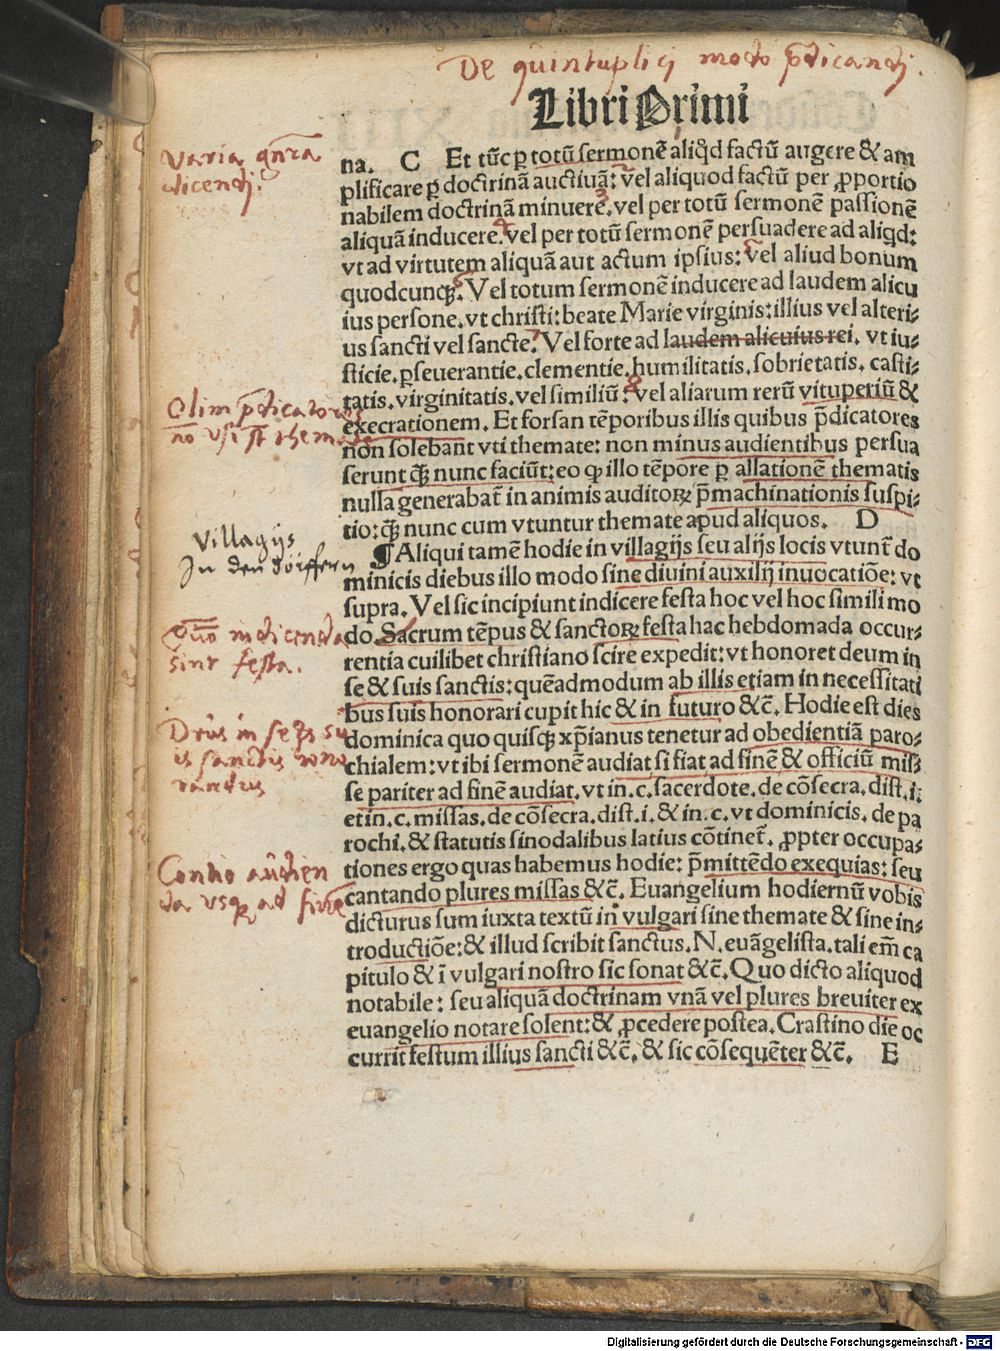 De quintuplici modo p̄dicandj.
Libri Primi
varia gn̄ra
dicendj.
na. C Et tūc ꝑ totū sermonē aliq̇d factū augere & am
plificare ꝑ doctrinā auctiuā: vel aliquod factū per ꝓportio
nabilem doctrinā minuere. vel per totū sermonē passionē
aliquā inducere. vel per totū sermonē persuadere ad aliqd:
vt ad virtutem aliquā aut actum ipsius: vel aliud bonum
quodcunqꝫ. Vel totum sermonē inducere ad laudem alicu
ius persone. vt christi: beate Marie virginis: illius vel alteri⸗
us sancti vel sancte. Vel forte ad laudem alicuius rei. vt iu⸗
sticie. ꝑseuerantie. clementie. humilitatis. sobrietatis. casti⸗
tatis. virginitatis. vel similiū: vel aliarum rerū vituperiū &
Olim p̄dicatores
nō vsi st̄ themate
execrationem. Et forsan tēporibus illis quibus p̄dicatores
non solebant vti themate: non minus audientibus persua
serunt qꝫ̄ nunc faciūt: eo ꝙ illo tēpore ꝑ allationē thematis
nulla generabat̄ in animis auditoꝝ p̄machinationis suspi⸗
tio: qꝫ̄ nunc cum vtuntur themate apud aliquos. D
Villagijs
In den dörffern
¶ Aliqui tamē hodie in villagijs seu alijs locis vtunt̄ do
minicis diebus illo modo sine diuini auxilij inuocatiōe: vt
supra. Vel sic incipiunt indicere festa hoc vel hoc simili mo
Quō indicenda
sint festa.
do. Sacrum tēpus & sanctoꝝ festa hac hebdomada occur⸗
rentia cuilibet christiano scire expedit: vt honoret deum in
se & suis sanctis: quēadmodum ab illis etiam in necessitati
bus suis honorari cupit hic & in futuro &c̄. Hodie est dies
Deus in se et su
is sanctis hono
randus
dominica quo quisqꝫ xp̄ianus tenetur ad obedientiā paro⸗
chialem: vt ibi sermonē audiat si fiat ad finē & officiū mis⸗
se pariter ad finē audiat. vt in. c. sacerdote. de cōsecra. dist. i:
et in. c. missas. de cōsecra. dist. i. & in. c. vt dominicis. de pa
rochi. & statutis sinodalibus latius cōtinet̄. ꝓpter occupa⸗
Contio audien
da vsqꝫ ad finē
tiones ergo quas habemus hodie: p̄mittēdo exequias: seu
cantando plures missas &c̄. Euangelium hodiernū vobis
dicturus sum iuxta textū in vulgari sine themate & sine in⸗
troductiōe: & illud scribit sanctus. N. euāgelista. tali em̄ ca
pitulo & ī vulgari nostro sic sonat &c̄. Quo dicto aliquod
notabile: seu aliquā doctrinam vnā vel plures breuiter ex
euangelio notare solent: & ꝓcedere postea. Crastino die oc
currit festum illius sancti &c̄. & sic cōsequēter &c̄. E
Digitalisierung gefördert durch die Deutsche Forschungsgemeinschaft - DFG